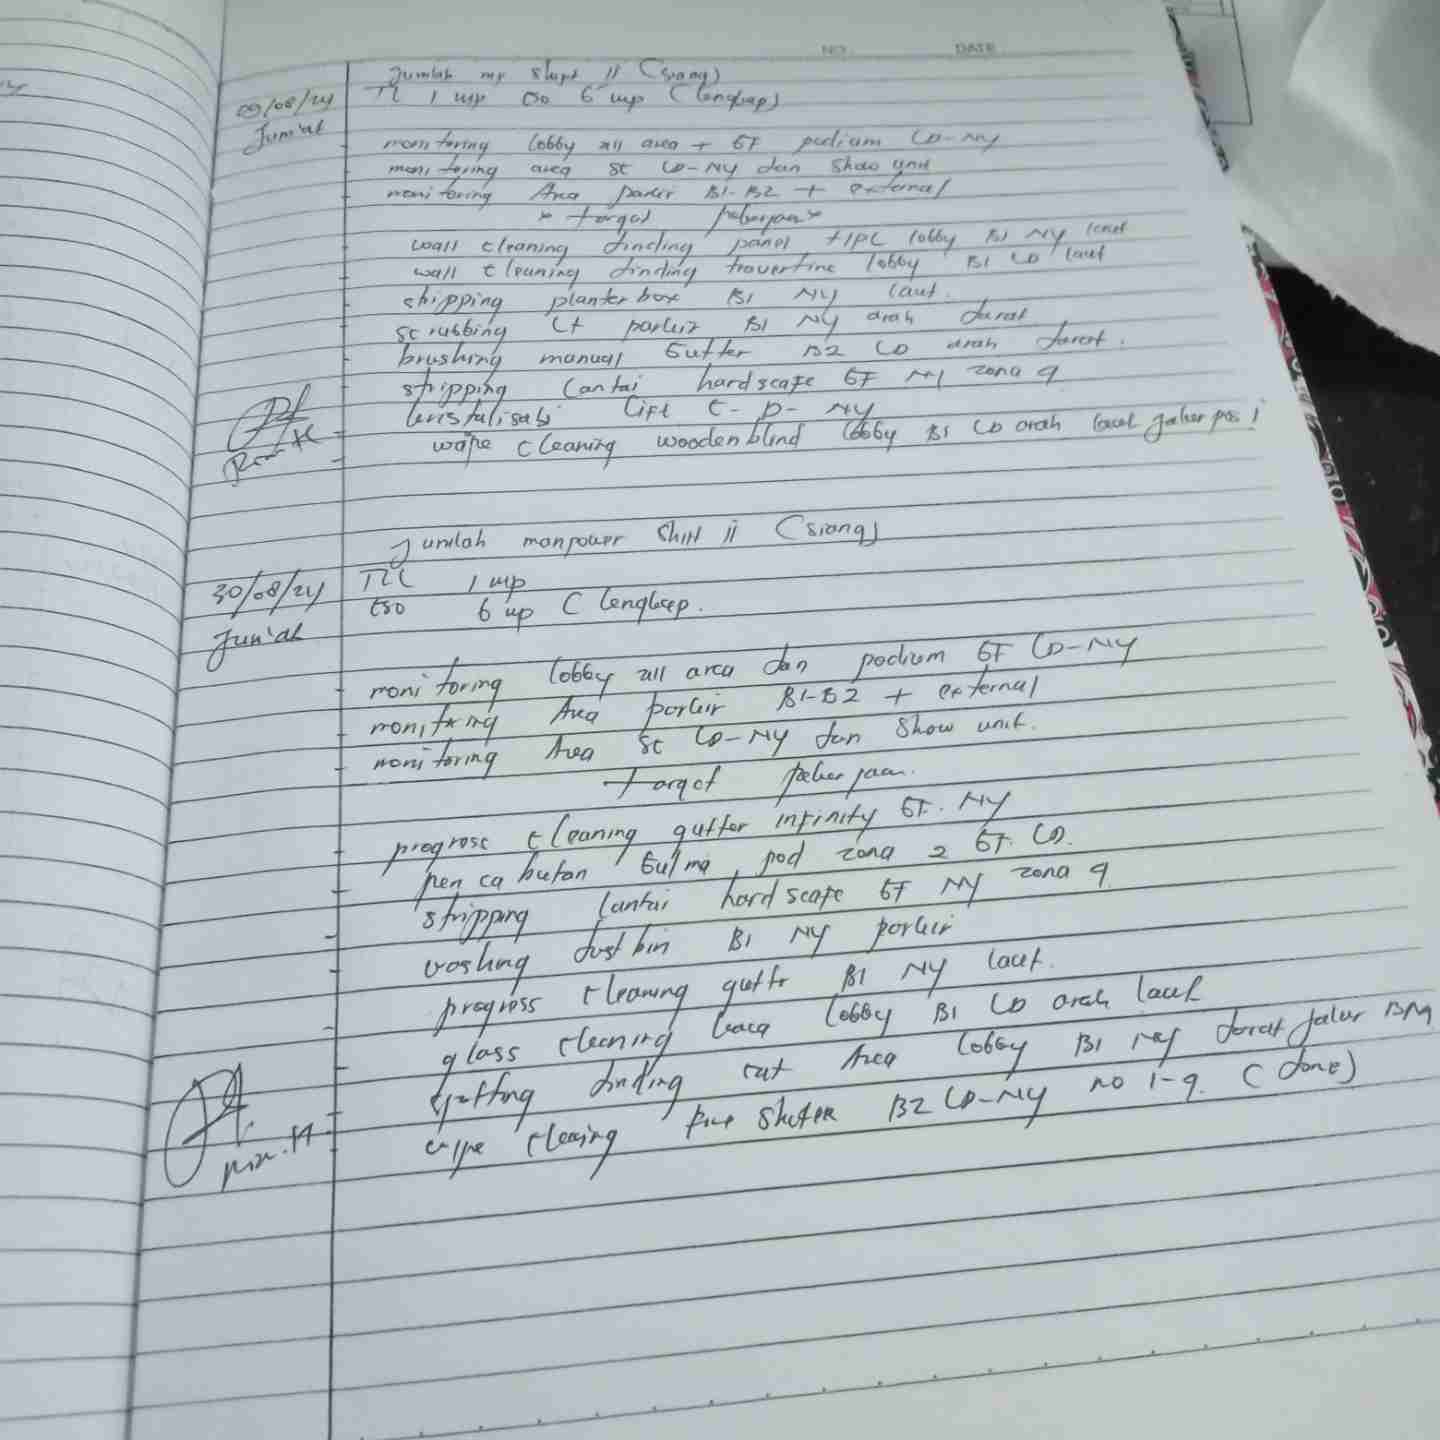 NO DATE
Jumlah mp Shift II (siang)
09/08/24 TL 1 mp CSO 6 mp (lengkap)
Jum'at
monitoring lobby all area + GF podium CD-NY
monitoring area SC CD-NY dan Show unit
monitoring Area parkir B1-B2 + external
* target pekerjaan *
wall cleaning dinding panel HPL lobby B1 NY laut
wall cleaning dinding travertine lobby B1 CD laut
shipping planter box B1 NY laut.
scrubbing Lt parkir B1 NY arah darat
brushing manual Gutter B2 CD arah darat.
stripping lantai hardscape GF NY zona 9
kristalisasi Lift C-D-NY
wape cleaning wooden blind lobby B1 CD arah laut
Jumlah manpower Shift II (Siang)
30/08/24 TLC 1 mp
Jum'at CSO 6 mp (lengkap.
monitoring lobby all area dan podium GF CD-NY
monitoring Area parkir B1-B2 + external
monitoring Area SC CD-NY dan Show unit.
target pekerjaan.
progress cleaning gutter infinity GF. NY
pencabutan Gulma pod zona 2 GF. CD.
stripping lantai hardscape GF NY zona 9
washing dustbin B1 NY parkir
progress cleaning guttr B1 NY laut.
glass cleaning kaca lobby B1 CD arah laut
dinding cat Area lobby B1 NY darat jalur
wipe cleaing Shuter B2 CD-NY no 1-9. (done)